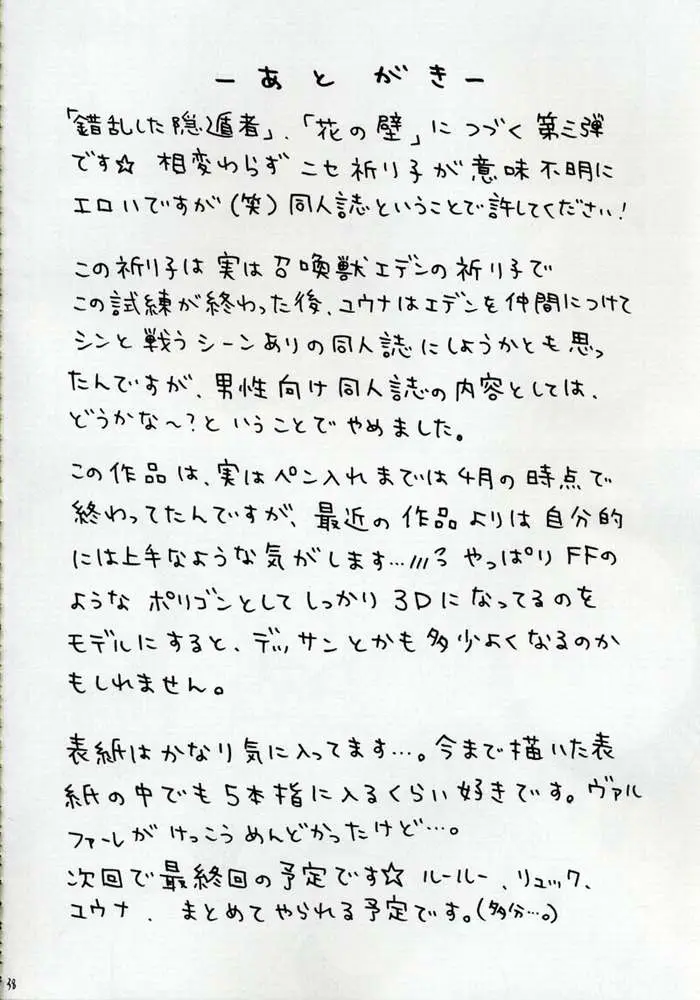 －あとがき－
「錯乱した隠遁者」、「花の壁」につづく第三弾
です☆ 相変わらずニセ祈り子が意味不明に
エロいですが(笑)同人誌ということで許してください!
この祈り子は実は召喚獣エデンの祈り子で
この試練が終わった後、ユウナはエデンを仲間につけて
シンと戦うシーンありの同人誌にしようかとも思っ
たんですが、男性向け同人誌の内容としては、
どうかな〜?ということでやめました。
この作品は、実はペン入れまでは4月の時点で
終わってたんですが、最近の作品よりは自分的
には上手なような気がします…//// やっぱりFFの
ようなポリゴンとしてしっかり3Dになってるのを
モデルにすると、デッサンとかも多少よくなるのか
もしれません。
表紙はかなり気に入ってます…。今まで描いた表
紙の中でも5本指に入るくらい好きです。ヴァル
ファーレがけっこうめんどかったけど…。
次回で最終回の予定です☆ ルールー、リュック、
ユウナ、まとめてやられる予定です。(多分…。)
38